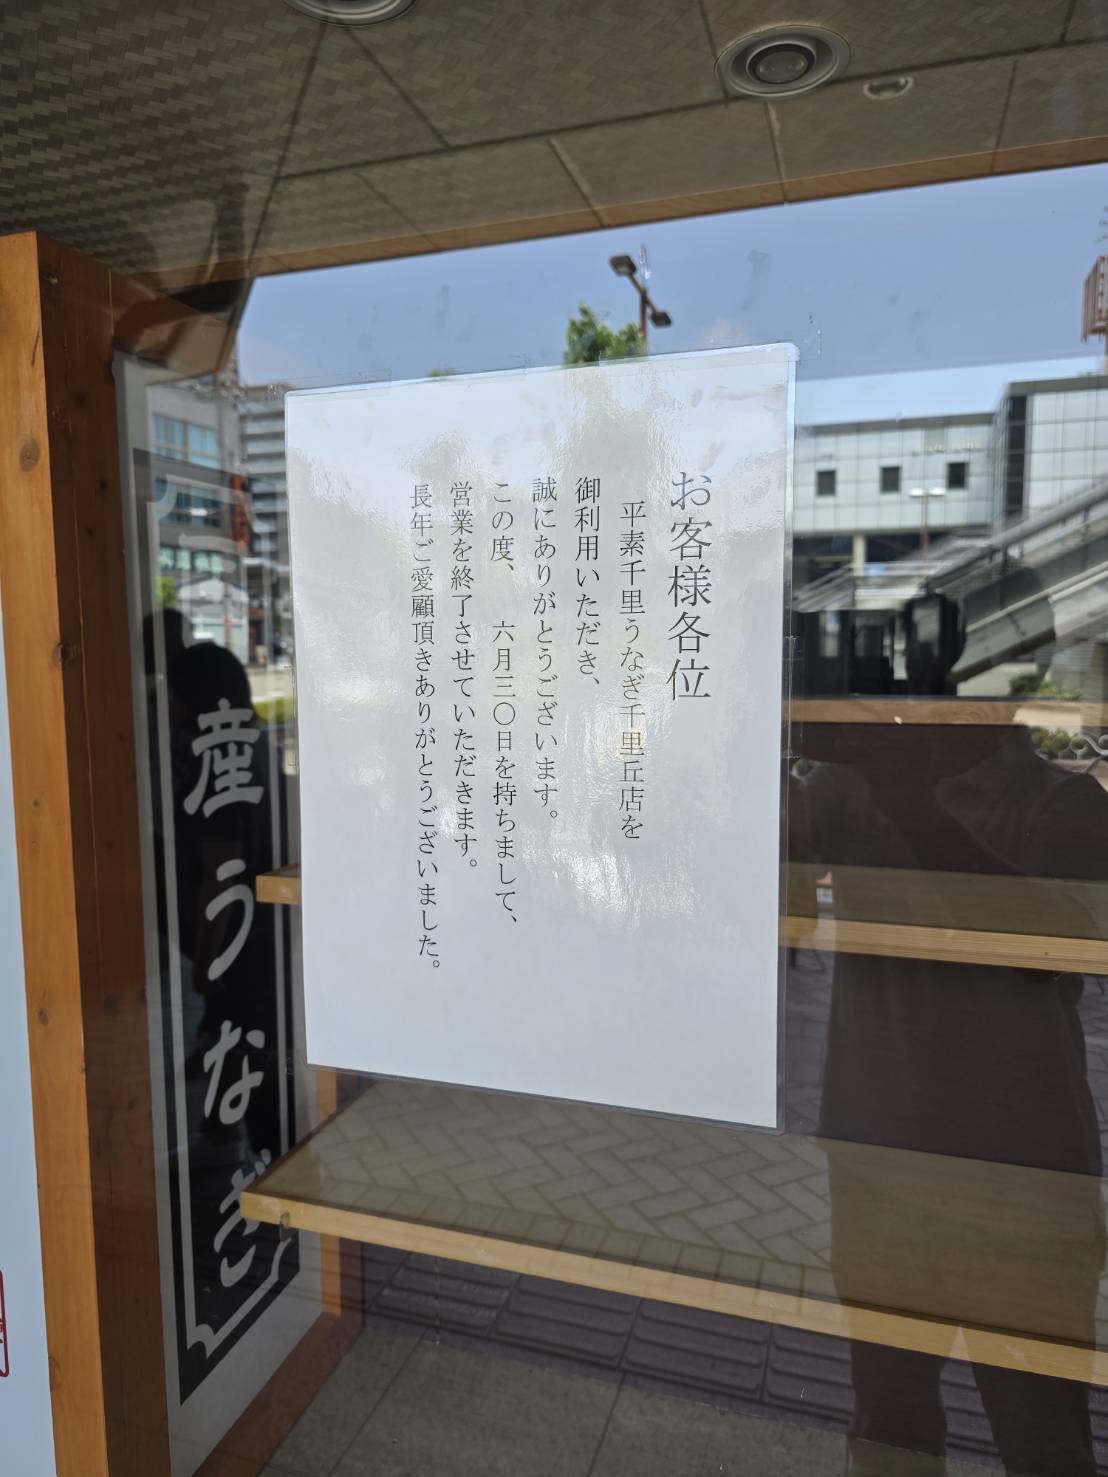 お客様各位
平素千里うなぎ千里丘店を
御利用いただき、
誠にありがとうございます。
この度、六月三〇日を持ちまして、
営業を終了させていただきます。
長年ご愛顧頂きありがとうございました。
産うなぎ